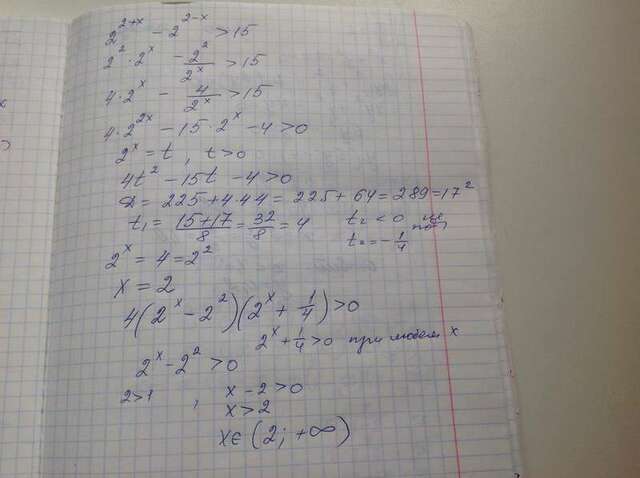 2^{2+x} - 2^{2-x} > 15
2^2 · 2^x - \frac{2^2}{2^x} > 15
4 · 2^x - \frac{4}{2^x} > 15
4 · 2^{2x} - 15 · 2^x - 4 > 0
2^x = t, t > 0
4t^2 - 15t - 4 > 0
D = 225 + 4·4·4 = 225 + 64 = 289 = 17^2
t_1 = \frac{15+17}{8} = \frac{32}{8} = 4 t_2 < 0 не
t_2 = -\frac{1}{4}
2^x = 4 = 2^2
x = 2
4(2^x - 2^2)(2^x + \frac{1}{4}) > 0
2^x + \frac{1}{4} > 0 при любом x
2^x - 2^2 > 0
2 > 1, x - 2 > 0
x > 2
x ∈ (2; +∞)